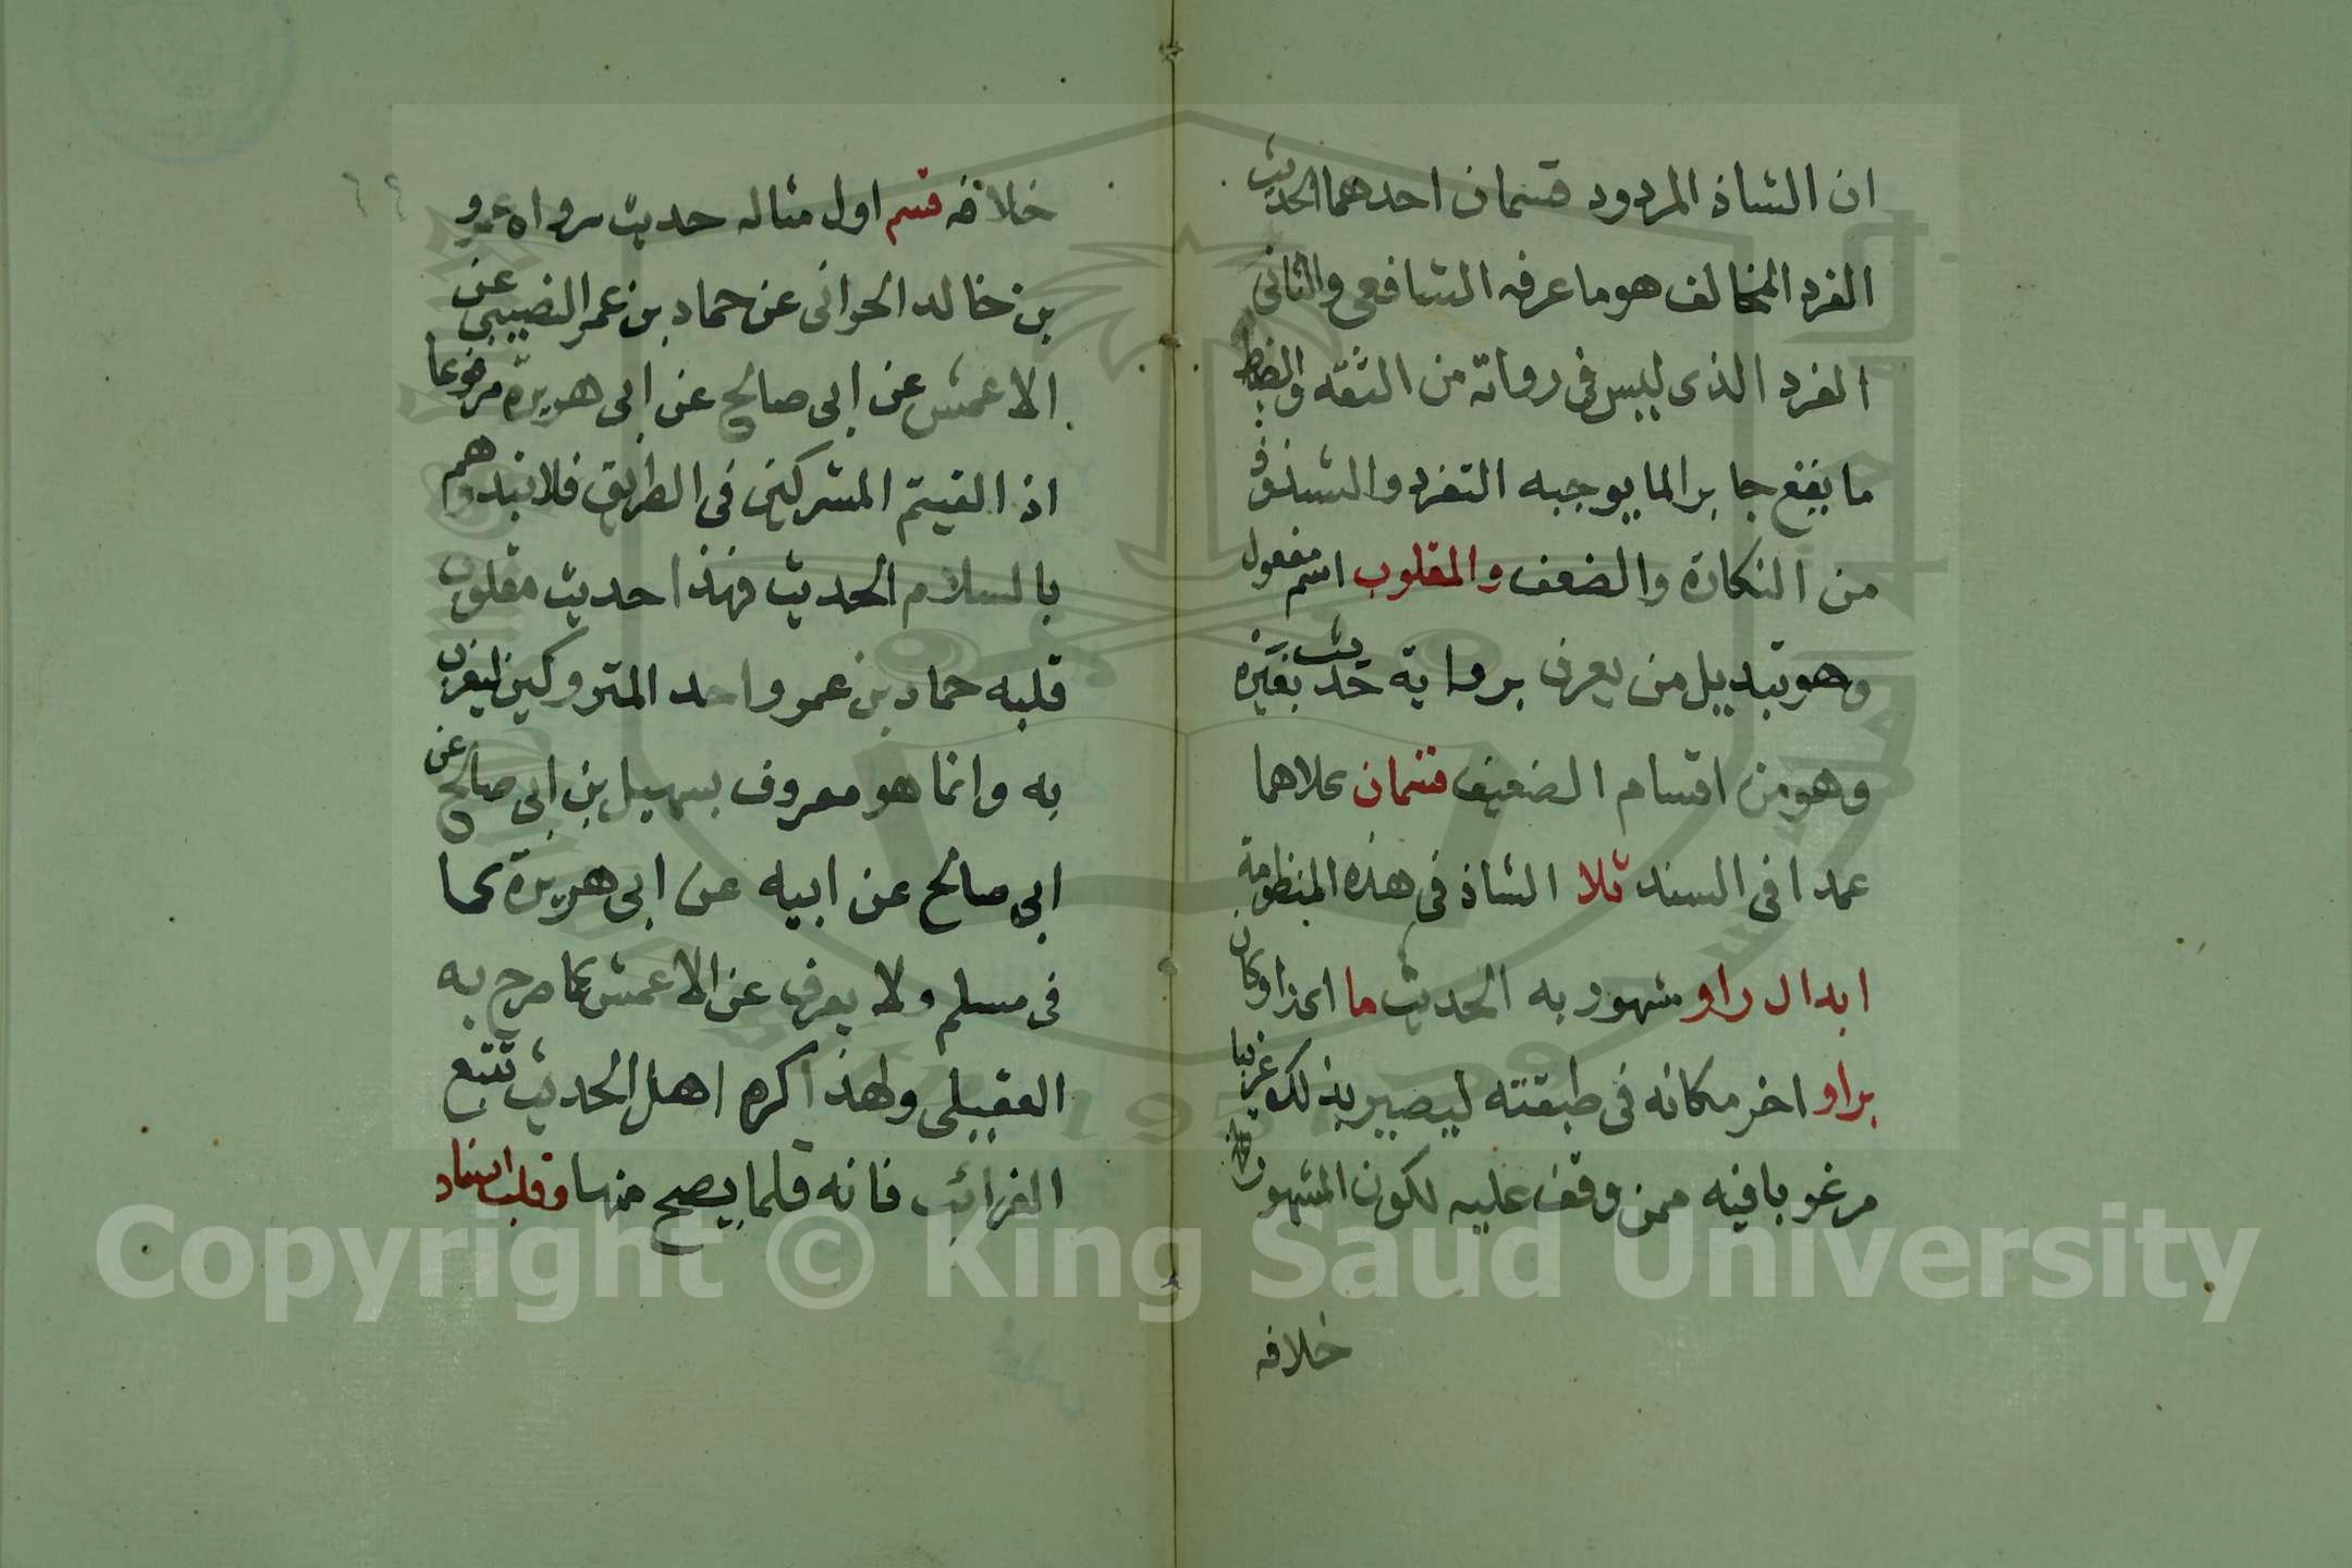 ان الشاذ المردود قسمان احدهما الحديث
الفرد المخالف هو ما عرفه الشافعى والثانى
الفرد الذى ليس فى رواته من الثقه والضبط
ما يقع جابرا لما يوجبه التفرد والشذوذ
من النكارة والضعف والمقلوب اسم مفعول
وهو تبديل من يعرف برواية حديث بغيره
وهو من اقسام الضعيف قسمان كلاهما
عمدا فى السند تلا الشاذ فى هذه المنظومة
ابدال راو مشهور به الحديث ما اى اذا وكان
براو اخر مكانه فى طبقته ليصير بذلك غريبا
مرغوبا فيه ممن وقف عليه لكون المشهور
خلافه
خلافه قسم اول مثاله حديث رواه عمرو
بن خالد الحرانى عن حماد بن عمر النصيبى عن
الاعمش عن ابى صالح عن ابى هريرة مرفوعا
اذا لقيتم المشركين فى الطريق فلا تبدوهم
بالسلام الحديث فهذا حديث مقلوب
قلبه حماد بن عمرو احد المتروكين ليغرب
به وانما هو معروف بسهيل بن ابى صالح عن
ابى صالح عن ابيه عن ابى هريرة كما
فى مسلم ولا يعرف عن الاعمش كما صرح به
العقيلى ولهذا كره اهل الحديث تتبع
الغرائب فانه قلما يصح منها وقلب اسناد
Copyright © King Saud University
1957